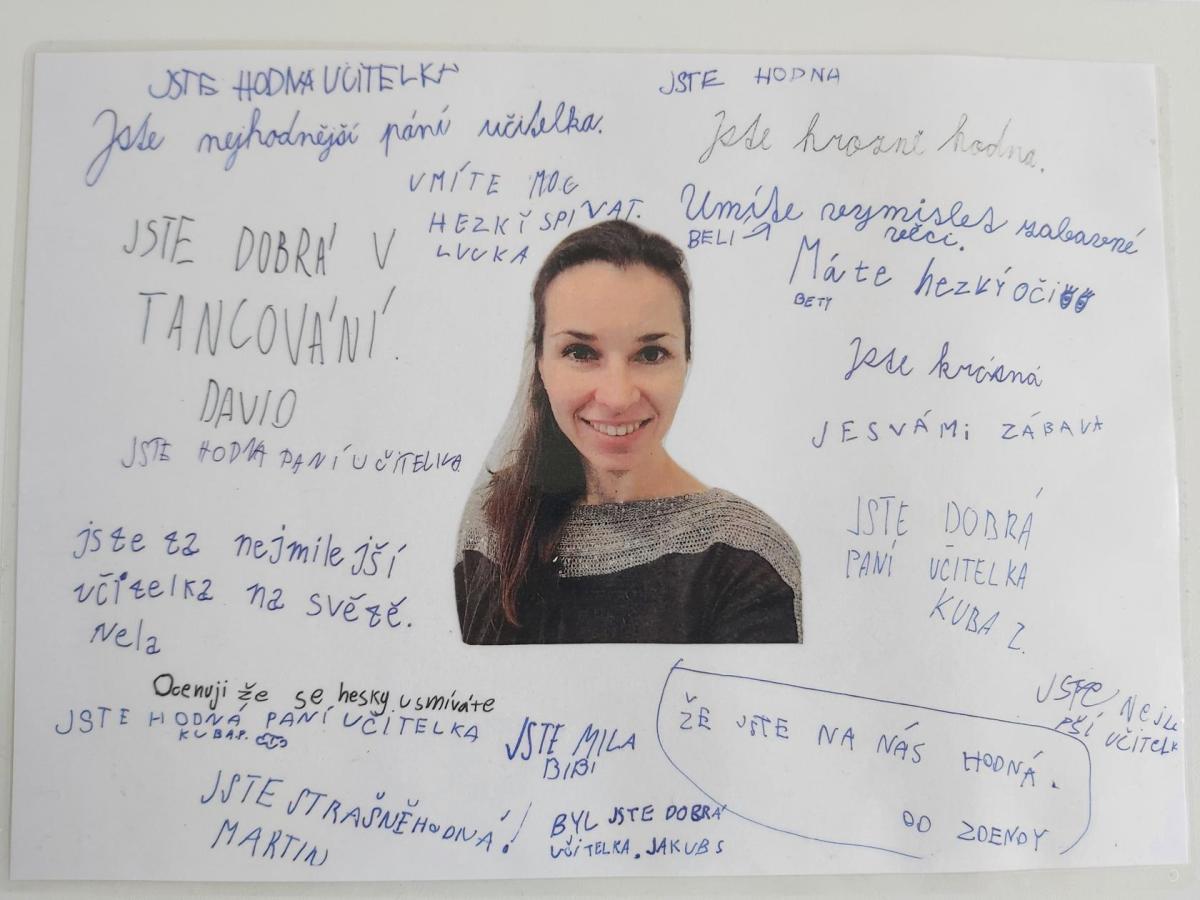 JSTE HODNA UČITELKA
Jste nejhodnější pání učitelka.
VMÍTE MOC
HEZKÍ SPIVAT.
LUCKA
JSTE DOBRÁ V
TANCOVÁNÍ.
DAVID
JSTE HODNA PANÍ UČITELKA
jste ta nejmilejší
učitelka na světě.
Nela
Ocenuji že se hesky usmíváte
JSTE HODNÁ PANÍ UČITELKA
KUBA P.
JSTE STRAŠNĚ HODNÁ!
MARTIN
JSTE MILA
BIBI
BYL JSTE DOBRÁ
UČITELKA. JAKUB S
JSTE HODNA
Jste hrozně hodna.
Umíte vymislet zabavné
věci.
BELI
Máte hezký oči
BETY
Jste krásná
JE S VÁMI ZÁBAVA
JSTE DOBRÁ
PANÍ UČITELKA
KUBA Z.
ŽE JSTE NA NÁS HODNÁ.
OD ZDENDY
JSTE NEJLE
PŠÍ UČITELK